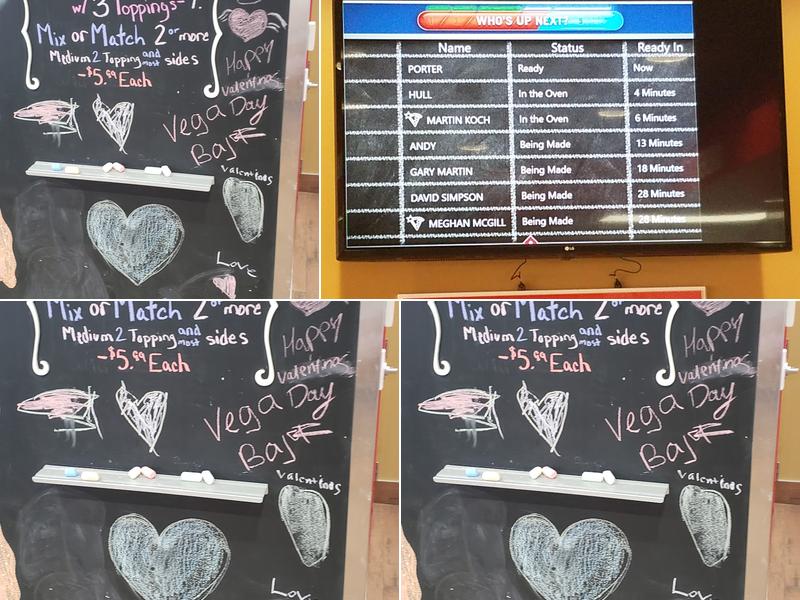 w/ 3 Toppings
Mix or Match 2 or more
Medium 2 Topping and most sides
-$5.99 Each
Happy
Valentines
Vega Day
Valentines
Love
WHO'S UP NEXT?
Name Status Ready In
PORTER Ready Now
HULL In the Oven 4 Minutes
MARTIN KOCH In the Oven 6 Minutes
ANDY Being Made 13 Minutes
GARY MARTIN Being Made 18 Minutes
DAVID SIMPSON Being Made 28 Minutes
MEGHAN MCGILL Being Made 28 Minutes
LG
Mix or Match 2 or more
Medium 2 Topping and most sides
-$5.99 Each
Happy
Valentines
Vega Day
Valentines
Mix or Match 2 or more
Medium 2 Topping and most sides
-$5.99 Each
Happy
Valentines
Vega Day
Valentines